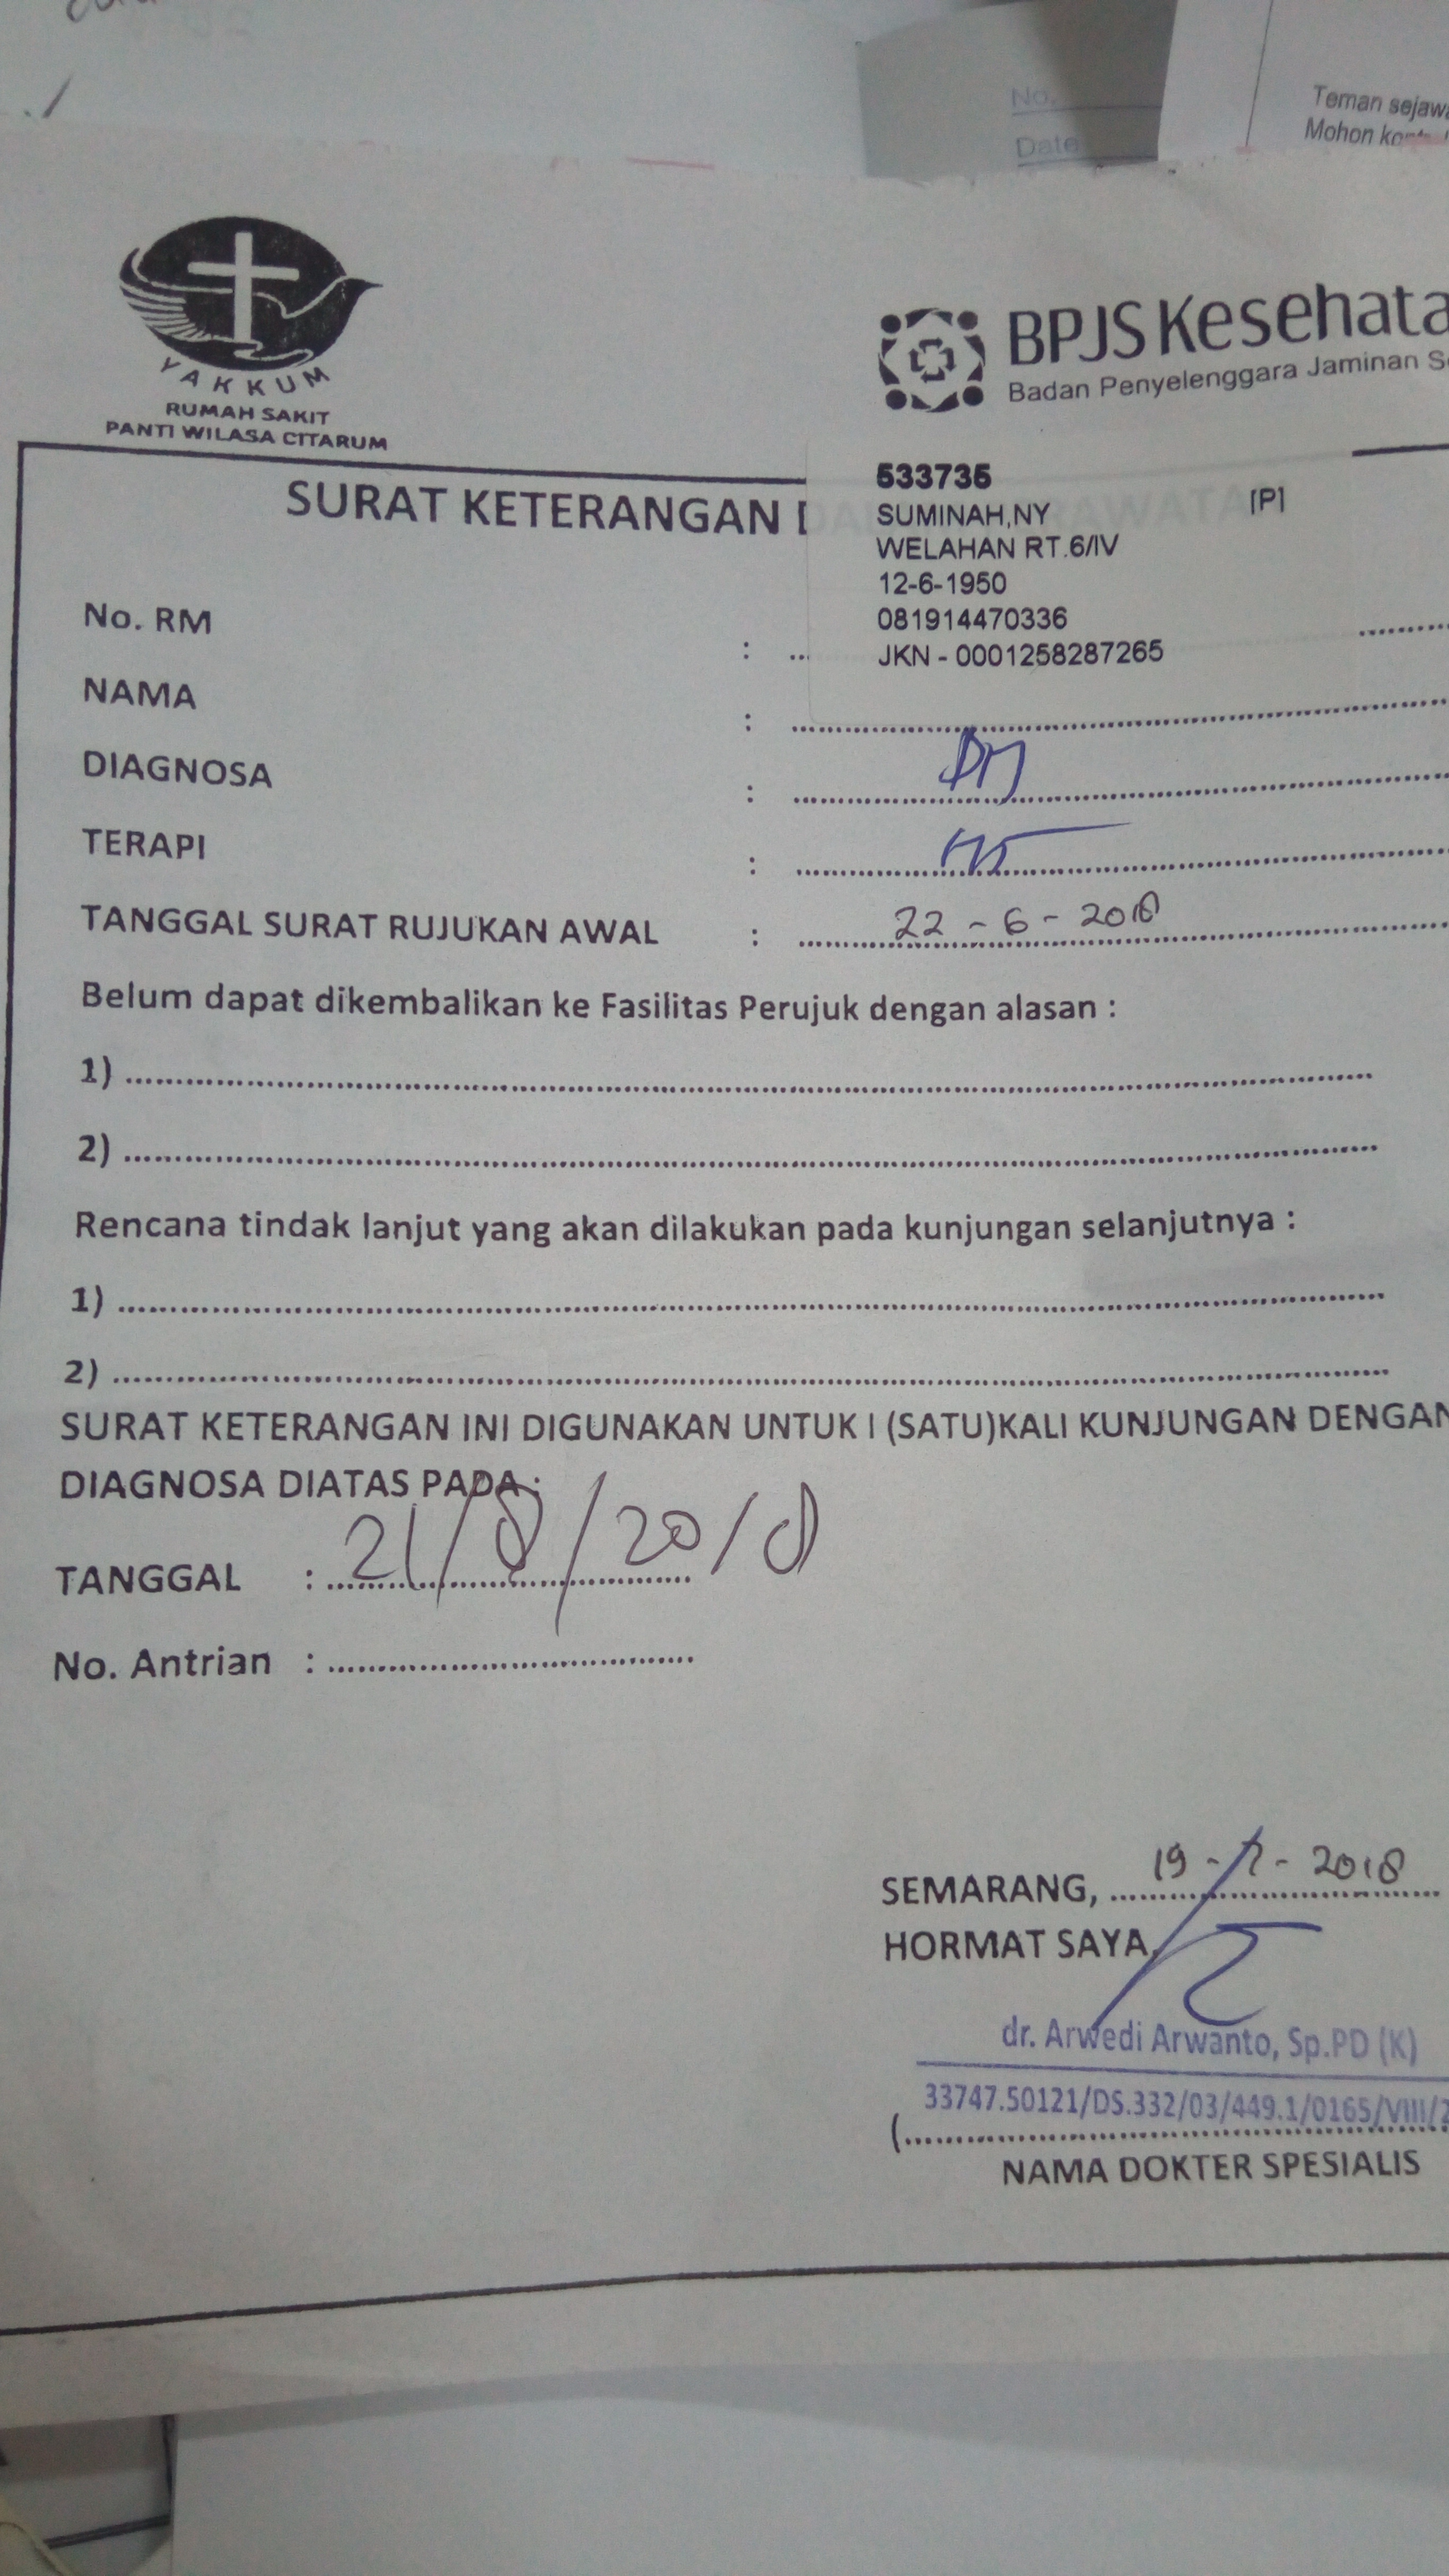 No.
Date
Teman sejaw
Mohon
YAKKUM
RUMAH SAKIT
PANTI WILASA CITARUM
BPJS Kesehata
Badan Penyelenggara Jaminan So
SURAT KETERANGAN D
533735
SUMINAH,NY [P]
WELAHAN RT.6/IV
12-6-1950
081914470336
JKN - 0001258287265
No. RM : ...
NAMA :
DIAGNOSA : DM
TERAPI :
TANGGAL SURAT RUJUKAN AWAL : 22 - 6 - 2018
Belum dapat dikembalikan ke Fasilitas Perujuk dengan alasan :
1)
2)
Rencana tindak lanjut yang akan dilakukan pada kunjungan selanjutnya :
1)
2)
SURAT KETERANGAN INI DIGUNAKAN UNTUK I (SATU)KALI KUNJUNGAN DENGAN
DIAGNOSA DIATAS PADA :
TANGGAL : 21/8/2018
No. Antrian :
SEMARANG, 19 - 7 - 2018
HORMAT SAYA,
dr. Arwedi Arwanto, Sp.PD (K)
33747.50121/DS.332/03/449.1/0165/VIII/2
(
NAMA DOKTER SPESIALIS